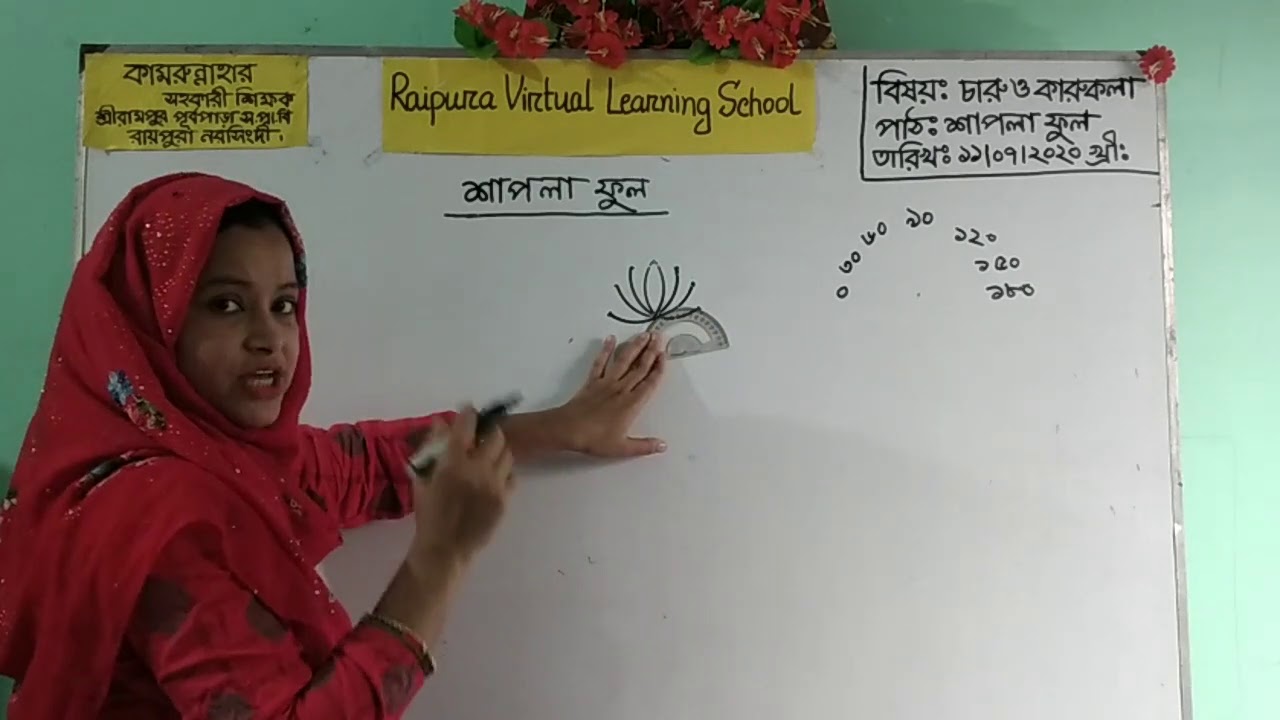 কামরুন্নাহার
সহকারী শিক্ষক
শ্রীরামপুর পূর্বপাড়া স.প্রা.বি
রায়পুরা নরসিংদী।
Raipura Virtual Learning School
বিষয়ঃ চারু ও কারুকলা
পাঠঃ শাপলা ফুল
তারিখঃ ১১/০৭/২০২০ খ্রীঃ
শাপলা ফুল
৯০
৬০
১২০
৩০
১৫০
০
১৮০